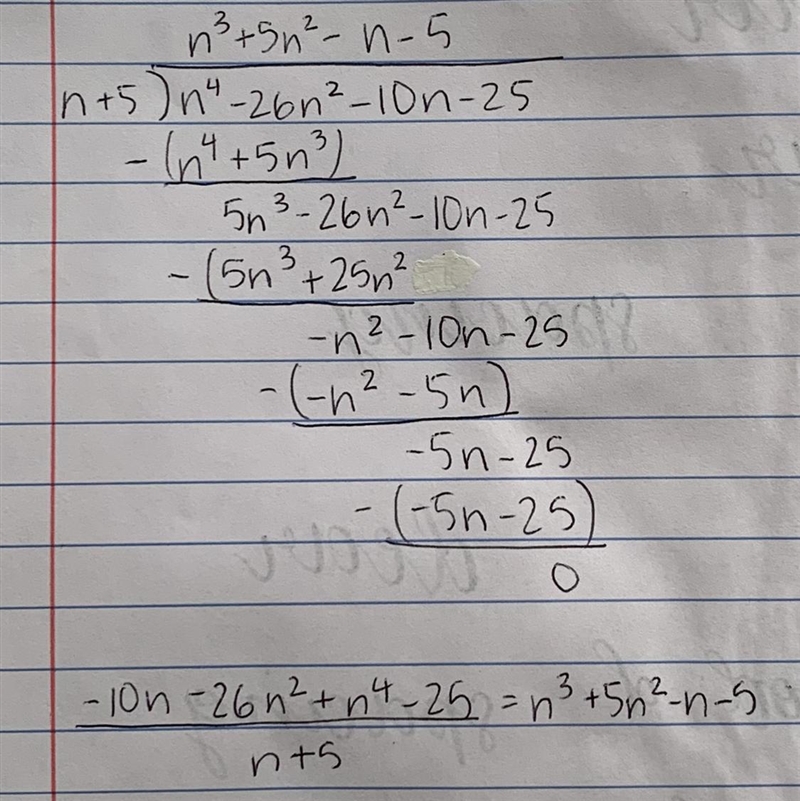 n³+5n²-n-5
n+5)n⁴-26n²-10n-25
-(n⁴+5n³)
5n³-26n²-10n-25
-(5n³+25n²
-n²-10n-25
-(-n²-5n)
-5n-25
-(-5n-25)
0
-10n-26n²+n⁴-25 = n³+5n²-n-5
n+5